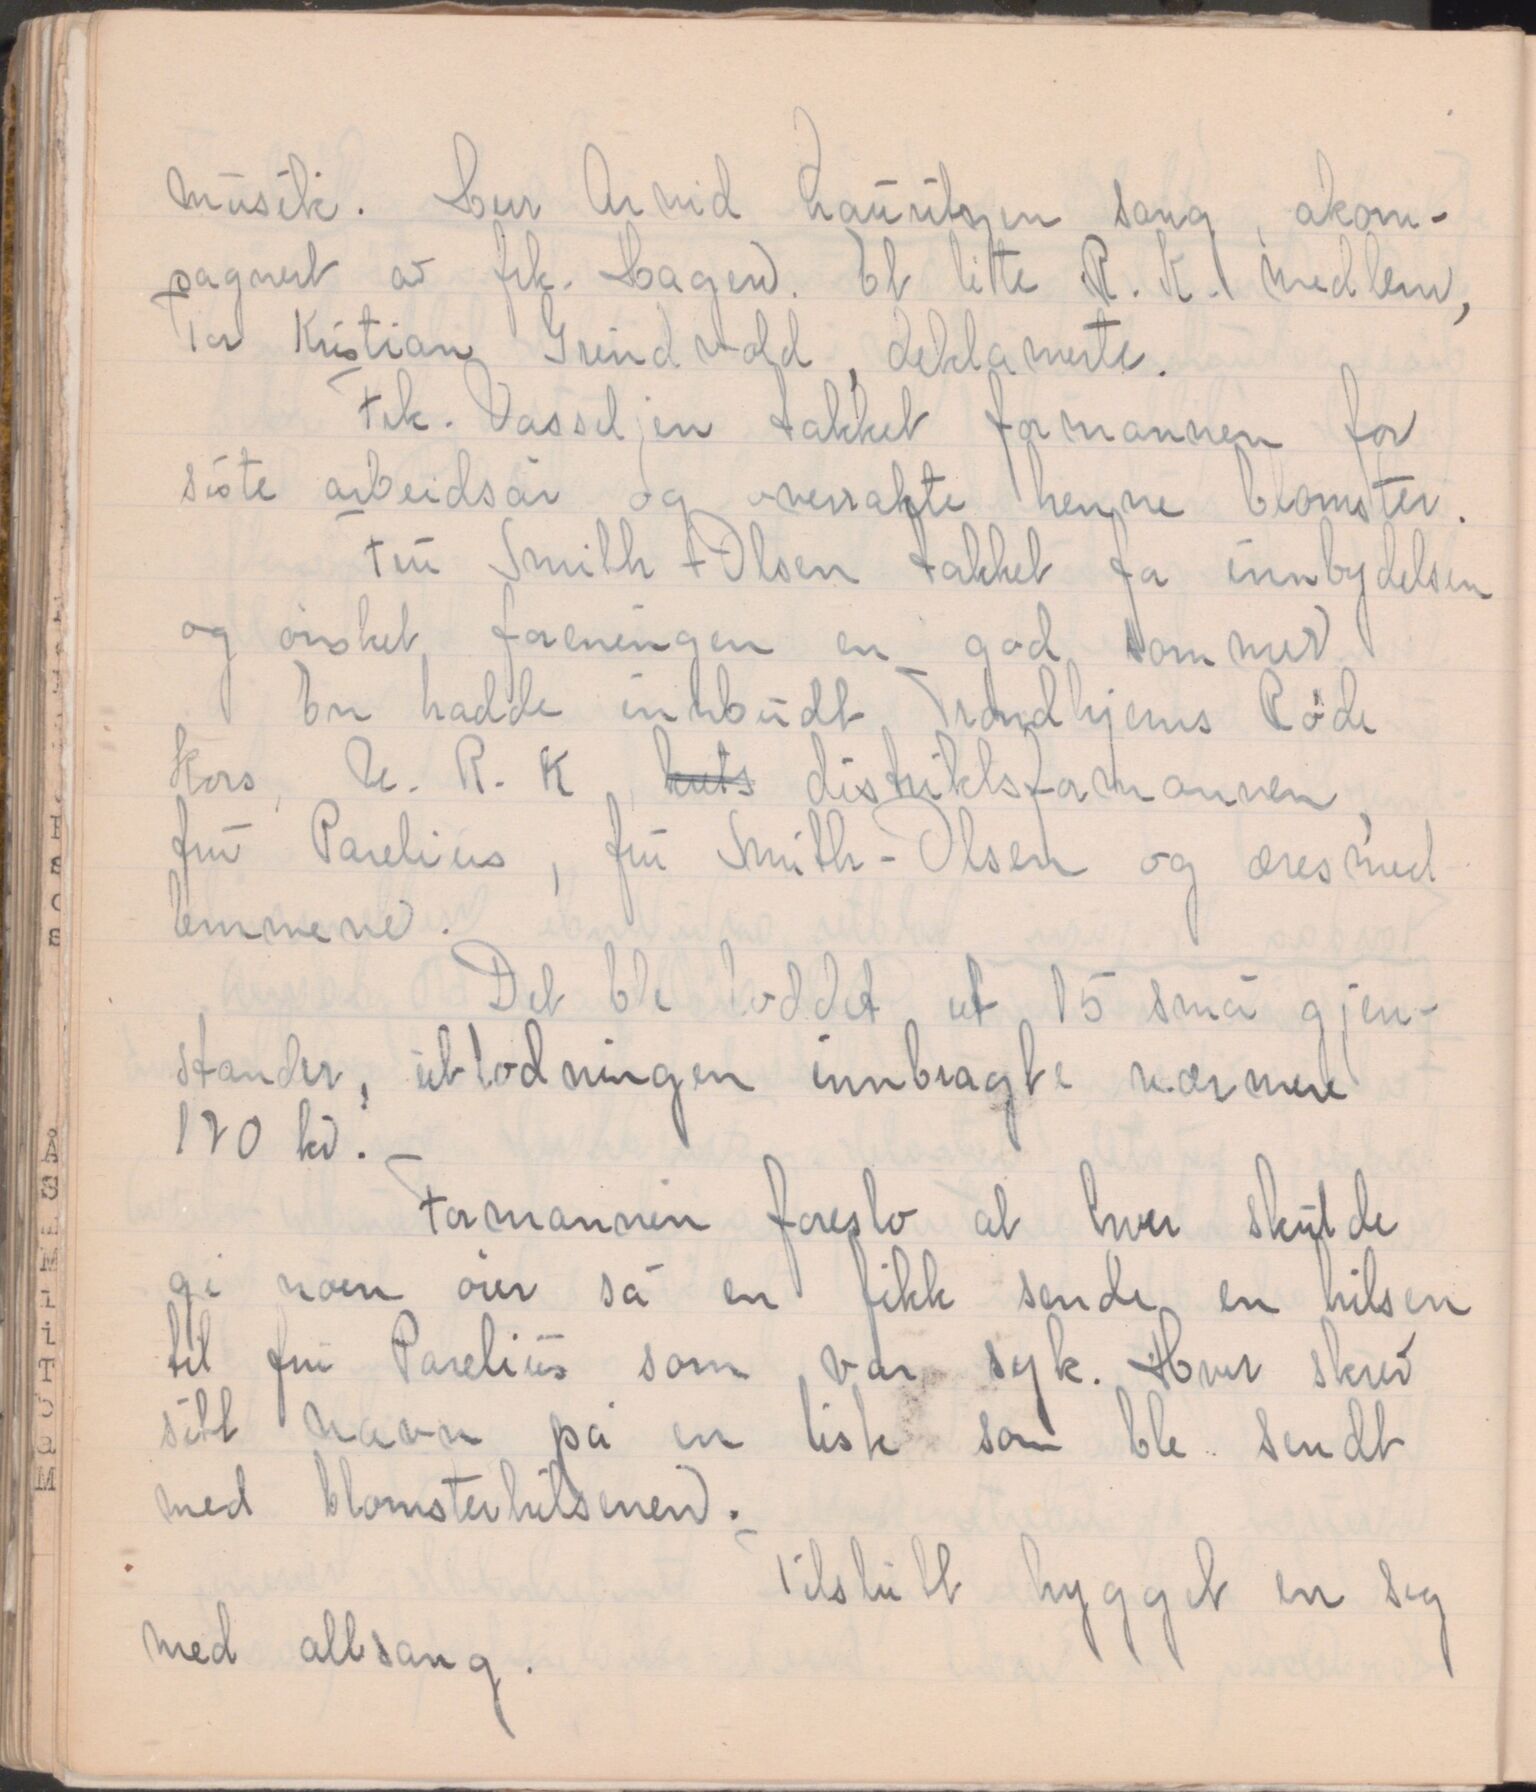 musik. Herr Arvid Lauritzen sang, akom-
pagnert av frk. Hagen. Et lite R. K. medlem,
Tor Kristian Grindvold, deklamerte.
Frk. Vasseljen takket formannen for
siste arbeidsår og overrakte henne blomster.
Fru Smith-Olsen takket for innbydelsen
og ønsket foreningen en god sommer
En hadde innbudt Trondhjems Røde
Kors, U. R. K, distriktsformannen,
fru Parelius, fru Smith-Olsen og æresmed
lemmene.
Det ble loddet ut 15 små gjen-
stander, utlodningen innbragte nærmere
120 kr.
Formannen foreslo at hver skulde
gi noen øier så en fikk sende en hilsen
til fru Parelius som var syk. Hver skrev
sitt navn på en liste som ble sendt
med blomsterhilsenen.
Tilslutt hygget en seg
med allsang.